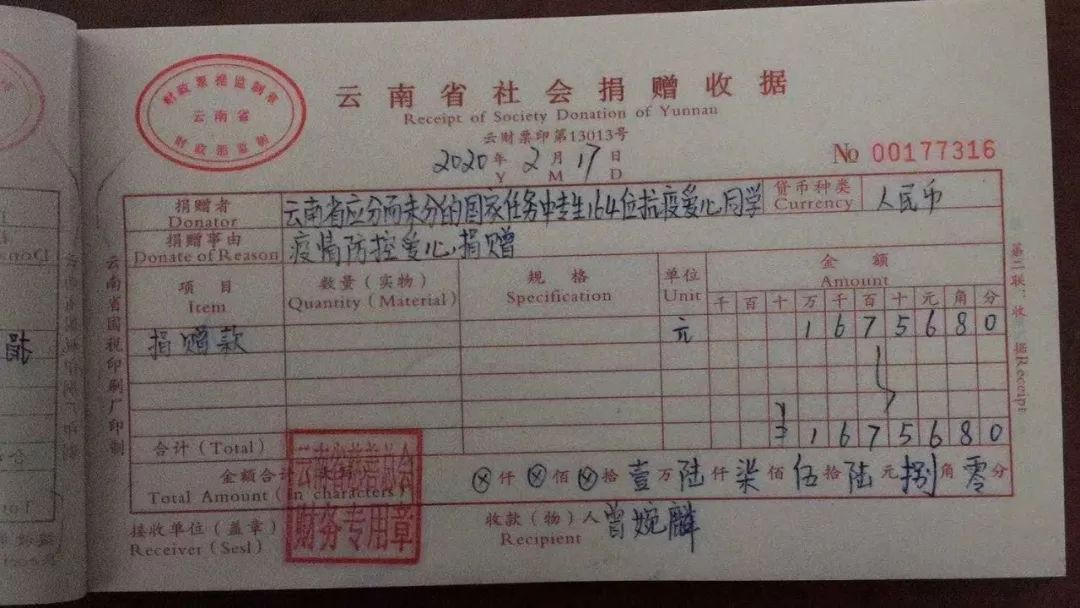 财政票据监制章
云南省
财政部监制
云南省社会捐赠收据
Receipt of Society Donation of Yunnan
云财票印第13013号
2020年2月17日
Y M D
No 00177316
捐赠者 云南省应分而未分的国家任务中专生164位抗疫爱心同学 货币种类 人民币
Donator Currency
捐赠事由 疫情防控爱心捐赠
Donate of Reason
项目 数量(实物) 规格 单位 金额
Item Quantity(Material) Specification Unit Amount
千 百 十 万 千 百 十 元 角 分
捐赠款 元 1 6 7 5 6 8 0
合计(Total) 1 6 7 5 6 8 0
金额合计 ⊗仟⊗佰⊗拾壹万陆仟柒佰伍拾陆元捌角零分
Total Amount(in characters)
接收单位(盖章) 收款(物)人 曾婉麟
Receiver(Sesl) Recipient
财务专用章
云南省国税印刷厂印制
第二联:收据Receipt